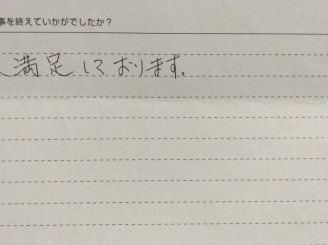 事を終えていかがでしたか？
満足しております。